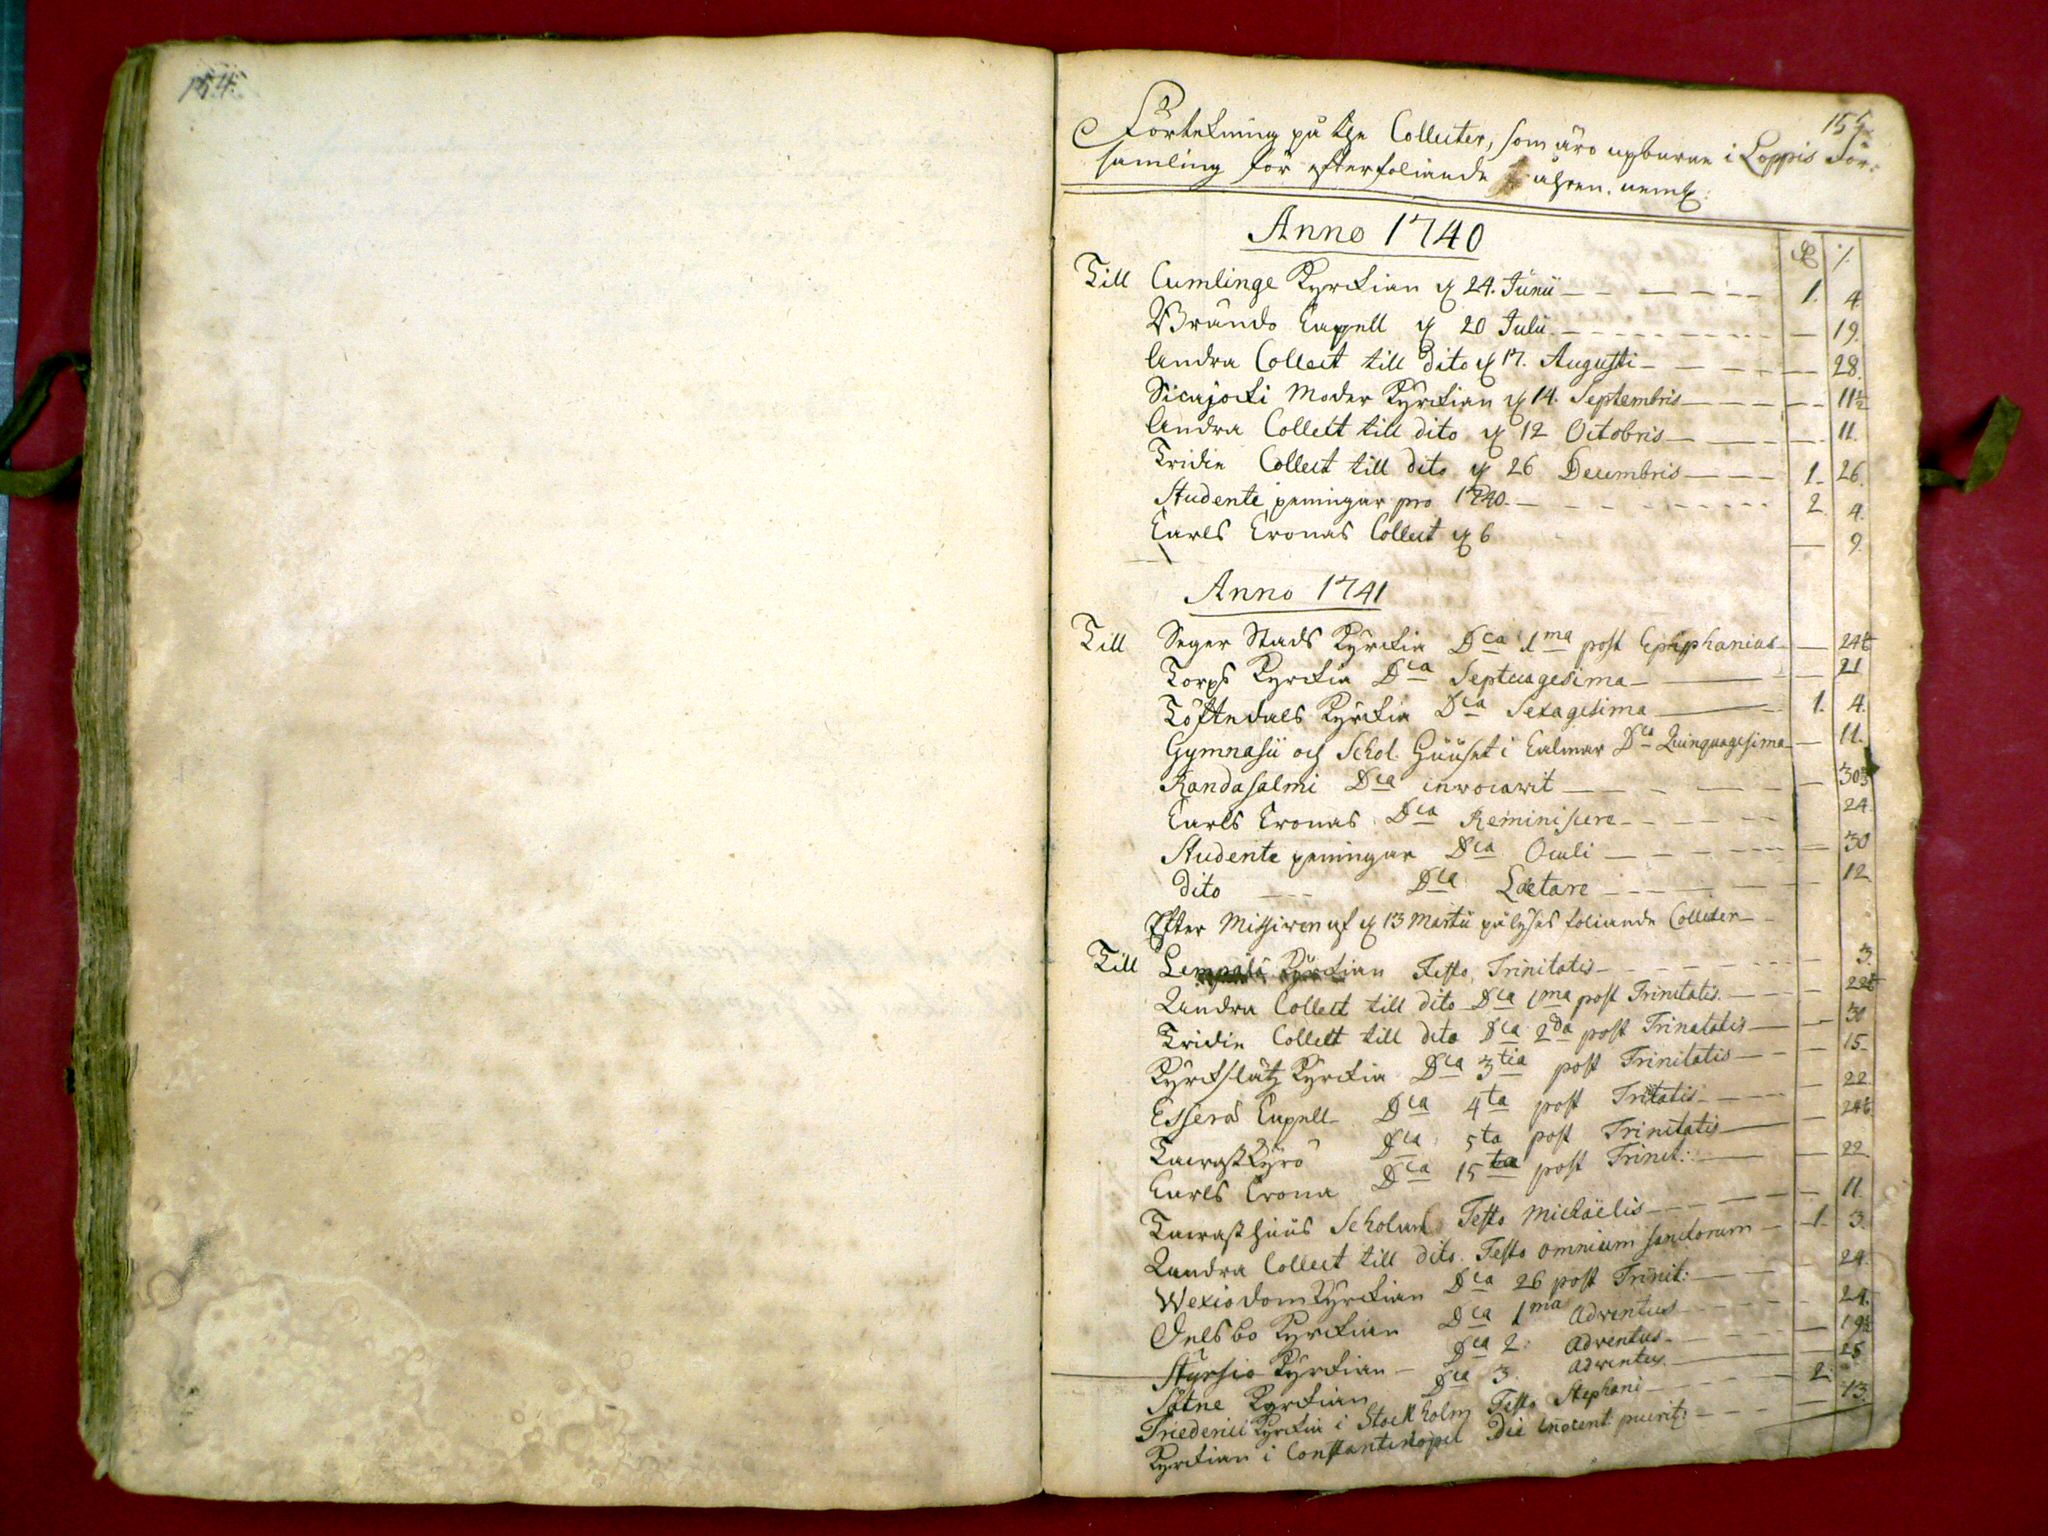 154.
155.
Förtekning på the Collecter, som äro upburne i Loppis För-
samling för effterfoliande åhren. neml:
Anno 1740
Till Cumlinge Kyrkian d 24. Junii — 1. 4.
Brändö Capell d 20 Julii — 19.
Andra Collect till dito d 17. Augusti — 28.
Sicajocki Moder Kyrkian d 14. Septembris — 11½
Andra Collect till dito d 12 Octobris — 11.
Tridie Collect till dito d 26 Decembris — 1. 26.
Studente peningar pro 1740. — 2. 4.
Carls Cronas Collect d 6 — 9
Anno 1741
Till Seger Stads Kyrckia Dca 1ma post Epiphanias — 24½
Torps Kyrckia Dca Septuagesima — 21
Töftedals Kyrckia Dca Sexagesima — 1. 4.
Gymnasii och Schol. Huuset i Calmar Dca Quinquagesima — 11.
Randasalmi Dca invocavit — 30½
Carls Cronas Dca Reminiscere — 24.
Studente peningar Dca Oculi — 30
Dito Dca Laetare — 12
Efter Missiven af d 13 Martii pålyses foliande Collecter —
Till Lempälä Kyrckian Festo Trinitatis — 3.
Andra Collect till dito Dca 1ma post Trinitatis. — 22½
Tridie Collect till dito Dca 2da post Trinatatis — 30
Kyrckslätz Kyrckia Dca 3tia post Trinitatis — 15.
Esserå Capell Dca 4ta post Tritatis — 22
Tavastkyrö Dca 5ta post Trinitatis — 24½
Carls Crona Dca 15ta post Trinit: — 22
Tavasthuus Scholan Festo Michaëlis — 11.
Andra Collect till dito. Festo omnium sanctorum — 1. 3.
Wexio domkyrckian Dca 26 post Trinit: — 24.
Delsbo Kyrckian Dca 1ma Adventus — 24.
Styrsio Kyrckian — Dca 2. Adventus — 19½
Sätne Kyrckian Dca 3. adventus — 25
Friederici Kyrckia i Stockholm Festo Stephani — 2.
Kyrckian i Constantinopel Die innocent. puerit: — 13.